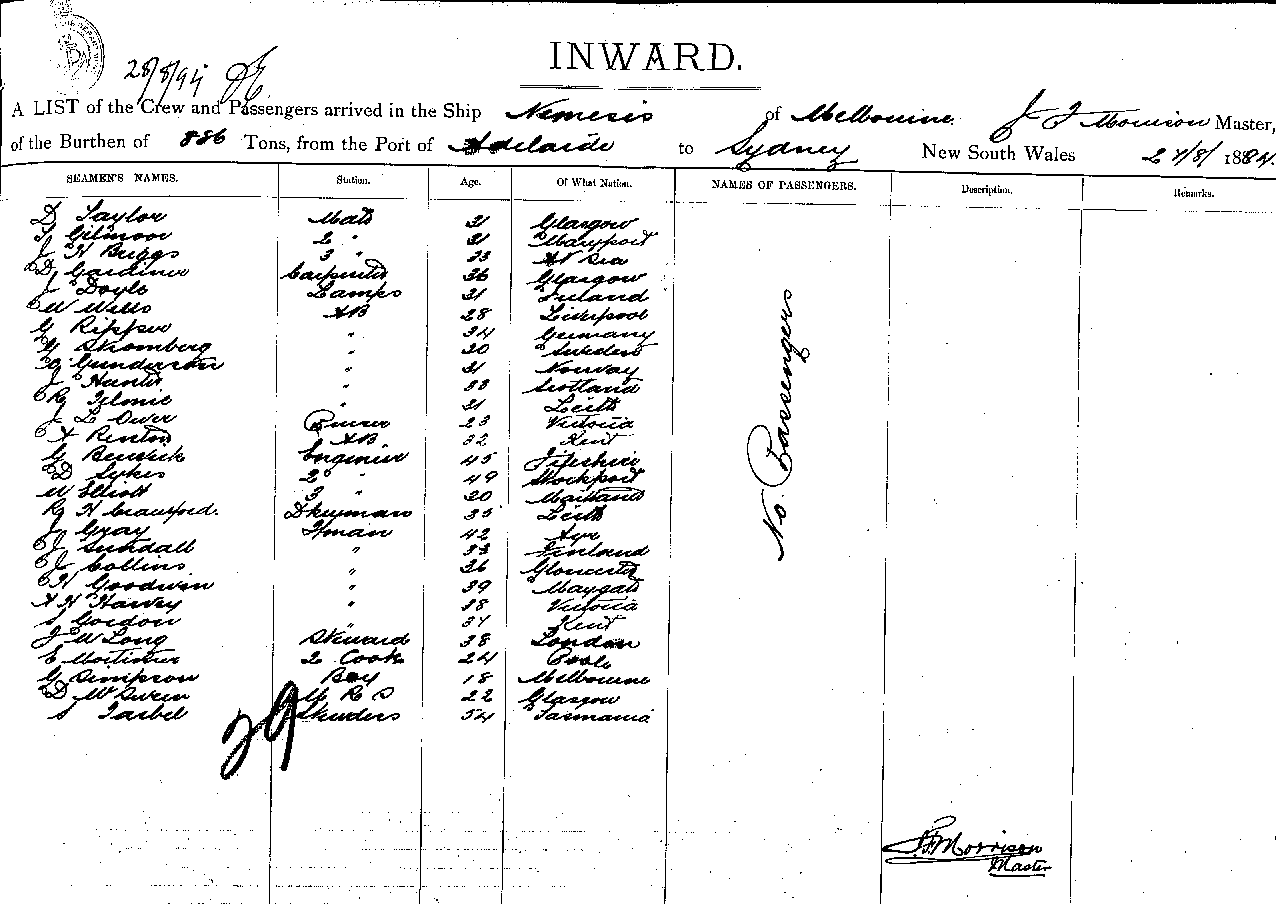 28/8/94
INWARD.
A LIST of the Crew and Passengers arrived in the Ship Nemesis of Melbourne J F Morrison Master,
of the Burthen of 886 Tons, from the Port of Adelaide to Sydney New South Wales 27/8/1894.
SEAMEN'S NAMES. Station. Age. Of What Nation. NAMES OF PASSENGERS. Description. Remarks.
D Taylor Mate 31 Glasgow
Gilmour 2 " 31 Maryport
J H Briggs 3 " 33 At Sea
D Gardiner Carpenter 36 Glasgow
J Doyle Lamps 31 Ireland
W Wills AB 28 Liverpool
G Ripper " 34 Germany
G Stromberg " 30 Sweden
Gunderson " 31 Norway
J Hunter " 33 Scotland
" 31 Leith
J L Over 23 Victoria
A Renton AB 32 Kent
G Berwick Engineer 45 Fifeshire
D Sykes 2 " 49 Stockport
W Elliott 3 " 30 Maitland
R H Crawford. Dkeyman 35 Leith
J Gray Fman 42 Ayr
J Sundall " 33 Finland
J Collins " 36 Gloucester
H Goodwin " 39 Margate
A H Harvey " 38 Victoria
S Gordon 37 Kent
J W Long Steward 38 London
E Mortimer 2 Cook 24 Poole
G Simpson Boy 18 Melbourne
D McEwen 22 Glasgow
S Tasbel Stewdess 54 Tasmania
29
No Passengers
J F Morrison
Master